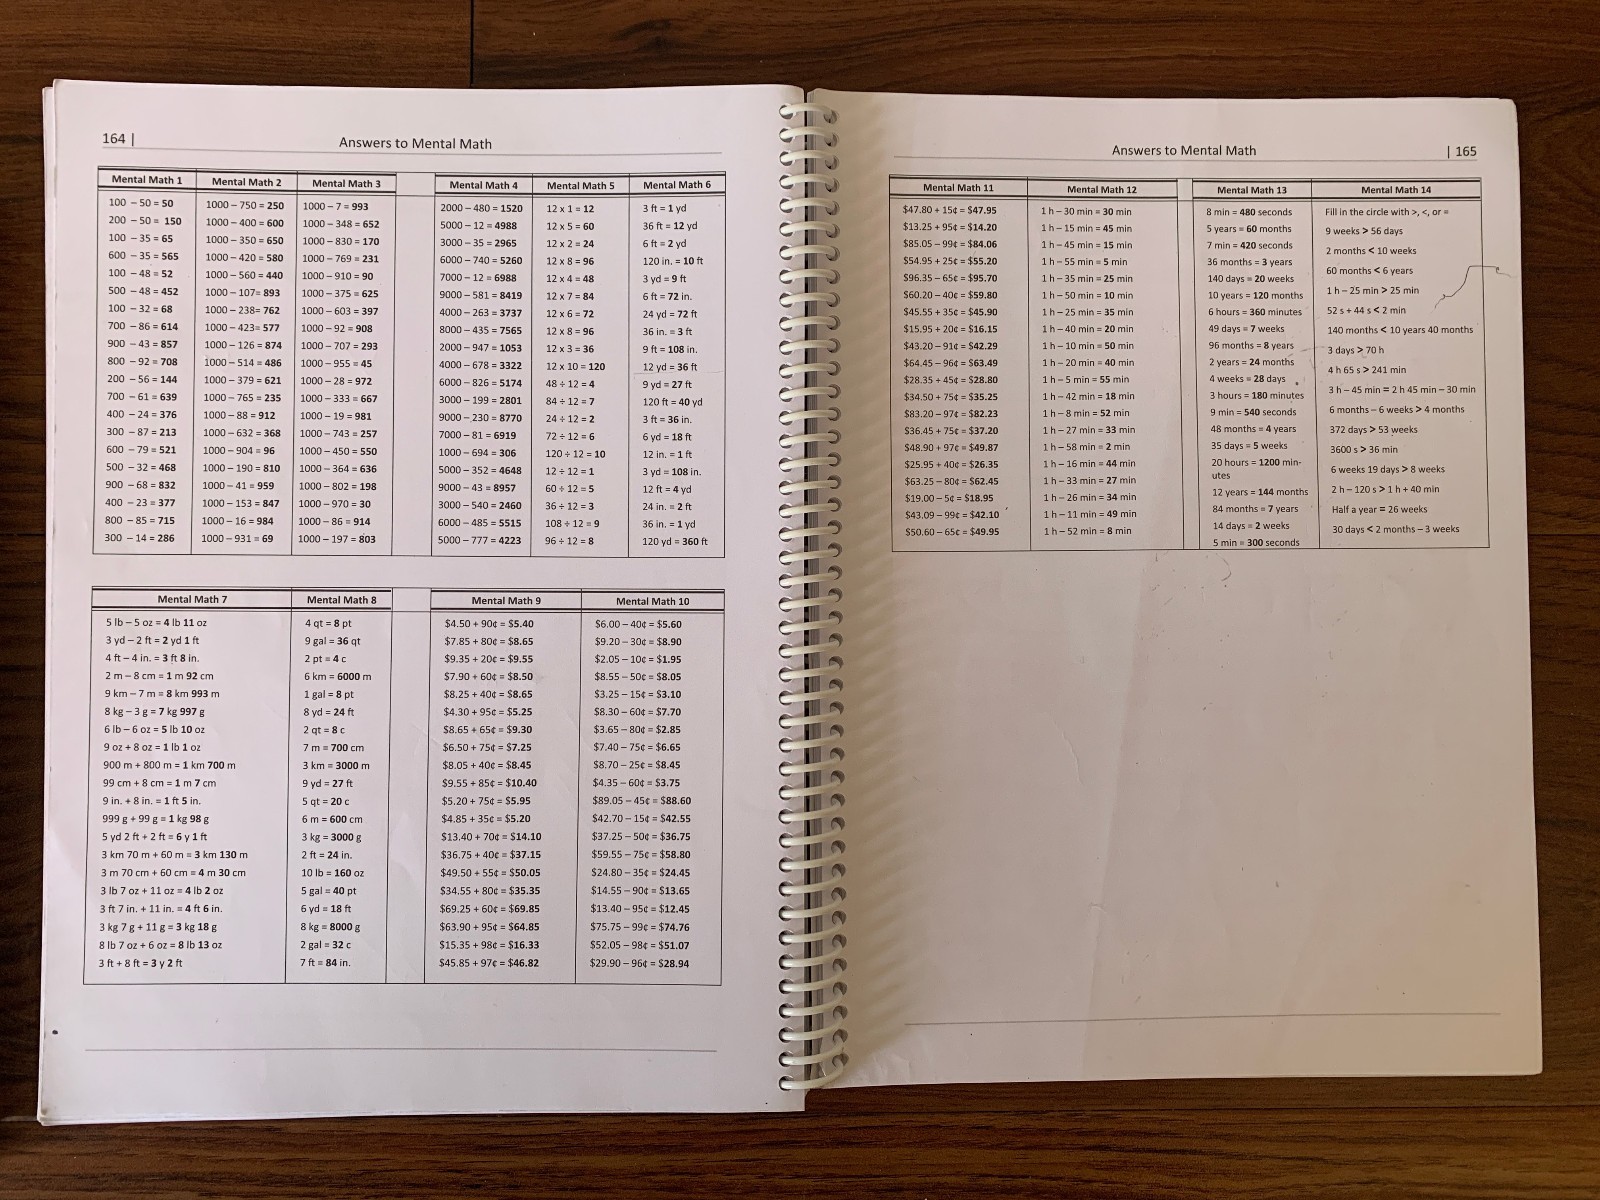 164 |
Answers to Mental Math
Mental Math 1
100 – 50 = 50
200 – 50 = 150
100 – 35 = 65
600 – 35 = 565
100 – 48 = 52
500 – 48 = 452
100 – 32 = 68
700 – 86 = 614
900 – 43 = 857
800 – 92 = 708
200 – 56 = 144
700 – 61 = 639
400 – 24 = 376
300 – 87 = 213
600 – 79 = 521
500 – 32 = 468
900 – 68 = 832
400 – 23 = 377
800 – 85 = 715
300 – 14 = 286
Mental Math 2
1000 – 750 = 250
1000 – 400 = 600
1000 – 350 = 650
1000 – 420 = 580
1000 – 560 = 440
1000 – 107= 893
1000 – 238= 762
1000 – 423= 577
1000 – 126 = 874
1000 – 514 = 486
1000 – 379 = 621
1000 – 765 = 235
1000 – 88 = 912
1000 – 632 = 368
1000 – 904 = 96
1000 – 190 = 810
1000 – 41 = 959
1000 – 153 = 847
1000 – 16 = 984
1000 – 931 = 69
Mental Math 3
1000 – 7 = 993
1000 – 348 = 652
1000 – 830 = 170
1000 – 769 = 231
1000 – 910 = 90
1000 – 375 = 625
1000 – 603 = 397
1000 – 92 = 908
1000 – 707 = 293
1000 – 955 = 45
1000 – 28 = 972
1000 – 333 = 667
1000 – 19 = 981
1000 – 743 = 257
1000 – 450 = 550
1000 – 364 = 636
1000 – 802 = 198
1000 – 970 = 30
1000 – 86 = 914
1000 – 197 = 803
Mental Math 4
2000 – 480 = 1520
5000 – 12 = 4988
3000 – 35 = 2965
6000 – 740 = 5260
7000 – 12 = 6988
9000 – 581 = 8419
4000 – 263 = 3737
8000 – 435 = 7565
2000 – 947 = 1053
4000 – 678 = 3322
6000 – 826 = 5174
3000 – 199 = 2801
9000 – 230 = 8770
7000 – 81 = 6919
1000 – 694 = 306
5000 – 352 = 4648
9000 – 43 = 8957
3000 – 540 = 2460
6000 – 485 = 5515
5000 – 777 = 4223
Mental Math 5
12 x 1 = 12
12 x 5 = 60
12 x 2 = 24
12 x 8 = 96
12 x 4 = 48
12 x 7 = 84
12 x 6 = 72
12 x 8 = 96
12 x 3 = 36
12 x 10 = 120
48 ÷ 12 = 4
84 ÷ 12 = 7
24 ÷ 12 = 2
72 ÷ 12 = 6
120 ÷ 12 = 10
12 ÷ 12 = 1
60 ÷ 12 = 5
36 ÷ 12 = 3
108 ÷ 12 = 9
96 ÷ 12 = 8
Mental Math 6
3 ft = 1 yd
36 ft = 12 yd
6 ft = 2 yd
120 in. = 10 ft
3 yd = 9 ft
6 ft = 72 in.
24 yd = 72 ft
36 in. = 3 ft
9 ft = 108 in.
12 yd = 36 ft
9 yd = 27 ft
120 ft = 40 yd
3 ft = 36 in.
6 yd = 18 ft
12 in. = 1 ft
3 yd = 108 in.
12 ft = 4 yd
24 in. = 2 ft
36 in. = 1 yd
120 yd = 360 ft
Mental Math 7
5 lb – 5 oz = 4 lb 11 oz
3 yd – 2 ft = 2 yd 1 ft
4 ft – 4 in. = 3 ft 8 in.
2 m – 8 cm = 1 m 92 cm
9 km – 7 m = 8 km 993 m
8 kg – 3 g = 7 kg 997 g
6 lb – 6 oz = 5 lb 10 oz
9 oz + 8 oz = 1 lb 1 oz
900 m + 800 m = 1 km 700 m
99 cm + 8 cm = 1 m 7 cm
9 in. + 8 in. = 1 ft 5 in.
999 g + 99 g = 1 kg 98 g
5 yd 2 ft + 2 ft = 6 y 1 ft
3 km 70 m + 60 m = 3 km 130 m
3 m 70 cm + 60 cm = 4 m 30 cm
3 lb 7 oz + 11 oz = 4 lb 2 oz
3 ft 7 in. + 11 in. = 4 ft 6 in.
3 kg 7 g + 11 g = 3 kg 18 g
8 lb 7 oz + 6 oz = 8 lb 13 oz
3 ft + 8 ft = 3 y 2 ft
Mental Math 8
4 qt = 8 pt
9 gal = 36 qt
2 pt = 4 c
6 km = 6000 m
1 gal = 8 pt
8 yd = 24 ft
2 qt = 8 c
7 m = 700 cm
3 km = 3000 m
9 yd = 27 ft
5 qt = 20 c
6 m = 600 cm
3 kg = 3000 g
2 ft = 24 in.
10 lb = 160 oz
5 gal = 40 pt
6 yd = 18 ft
8 kg = 8000 g
2 gal = 32 c
7 ft = 84 in.
Mental Math 9
$4.50 + 90¢ = $5.40
$7.85 + 80¢ = $8.65
$9.35 + 20¢ = $9.55
$7.90 + 60¢ = $8.50
$8.25 + 40¢ = $8.65
$4.30 + 95¢ = $5.25
$8.65 + 65¢ = $9.30
$6.50 + 75¢ = $7.25
$8.05 + 40¢ = $8.45
$9.55 + 85¢ = $10.40
$5.20 + 75¢ = $5.95
$4.85 + 35¢ = $5.20
$13.40 + 70¢ = $14.10
$36.75 + 40¢ = $37.15
$49.50 + 55¢ = $50.05
$34.55 + 80¢ = $35.35
$69.25 + 60¢ = $69.85
$63.90 + 95¢ = $64.85
$15.35 + 98¢ = $16.33
$45.85 + 97¢ = $46.82
Mental Math 10
$6.00 – 40¢ = $5.60
$9.20 – 30¢ = $8.90
$2.05 – 10¢ = $1.95
$8.55 – 50¢ = $8.05
$3.25 – 15¢ = $3.10
$8.30 – 60¢ = $7.70
$3.65 – 80¢ = $2.85
$7.40 – 75¢ = $6.65
$8.70 – 25¢ = $8.45
$4.35 – 60¢ = $3.75
$89.05 – 45¢ = $88.60
$42.70 – 15¢ = $42.55
$37.25 – 50¢ = $36.75
$59.55 – 75¢ = $58.80
$24.80 – 35¢ = $24.45
$14.55 – 90¢ = $13.65
$13.40 – 95¢ = $12.45
$75.75 – 99¢ = $74.76
$52.05 – 98¢ = $51.07
$29.90 – 96¢ = $28.94
Answers to Mental Math
| 165
Mental Math 11
$47.80 + 15¢ = $47.95
$13.25 + 95¢ = $14.20
$85.05 – 99¢ = $84.06
$54.95 + 25¢ = $55.20
$96.35 – 65¢ = $95.70
$60.20 – 40¢ = $59.80
$45.55 + 35¢ = $45.90
$15.95 + 20¢ = $16.15
$43.20 – 91¢ = $42.29
$64.45 – 96¢ = $63.49
$28.35 + 45¢ = $28.80
$34.50 + 75¢ = $35.25
$83.20 – 97¢ = $82.23
$36.45 + 75¢ = $37.20
$48.90 + 97¢ = $49.87
$25.95 + 40¢ = $26.35
$63.25 – 80¢ = $62.45
$19.00 – 5¢ = $18.95
$43.09 – 99¢ = $42.10
$50.60 – 65¢ = $49.95
Mental Math 12
1 h – 30 min = 30 min
1 h – 15 min = 45 min
1 h – 45 min = 15 min
1 h – 55 min = 5 min
1 h – 35 min = 25 min
1 h – 50 min = 10 min
1 h – 25 min = 35 min
1 h – 40 min = 20 min
1 h – 10 min = 50 min
1 h – 20 min = 40 min
1 h – 5 min = 55 min
1 h – 42 min = 18 min
1 h – 8 min = 52 min
1 h – 27 min = 33 min
1 h – 58 min = 2 min
1 h – 16 min = 44 min
1 h – 33 min = 27 min
1 h – 26 min = 34 min
1 h – 11 min = 49 min
1 h – 52 min = 8 min
Mental Math 13
8 min = 480 seconds
5 years = 60 months
7 min = 420 seconds
36 months = 3 years
140 days = 20 weeks
10 years = 120 months
6 hours = 360 minutes
49 days = 7 weeks
96 months = 8 years
2 years = 24 months
4 weeks = 28 days
3 hours = 180 minutes
9 min = 540 seconds
48 months = 4 years
35 days = 5 weeks
20 hours = 1200 min-
utes
12 years = 144 months
84 months = 7 years
14 days = 2 weeks
5 min = 300 seconds
Mental Math 14
Fill in the circle with >, <, or =
9 weeks > 56 days
2 months < 10 weeks
60 months < 6 years
1 h – 25 min > 25 min
52 s + 44 s < 2 min
140 months < 10 years 40 months
3 days > 70 h
4 h 65 s > 241 min
3 h – 45 min = 2 h 45 min – 30 min
6 months – 6 weeks > 4 months
372 days > 53 weeks
3600 s > 36 min
6 weeks 19 days > 8 weeks
2 h – 120 s > 1 h + 40 min
Half a year = 26 weeks
30 days < 2 months – 3 weeks